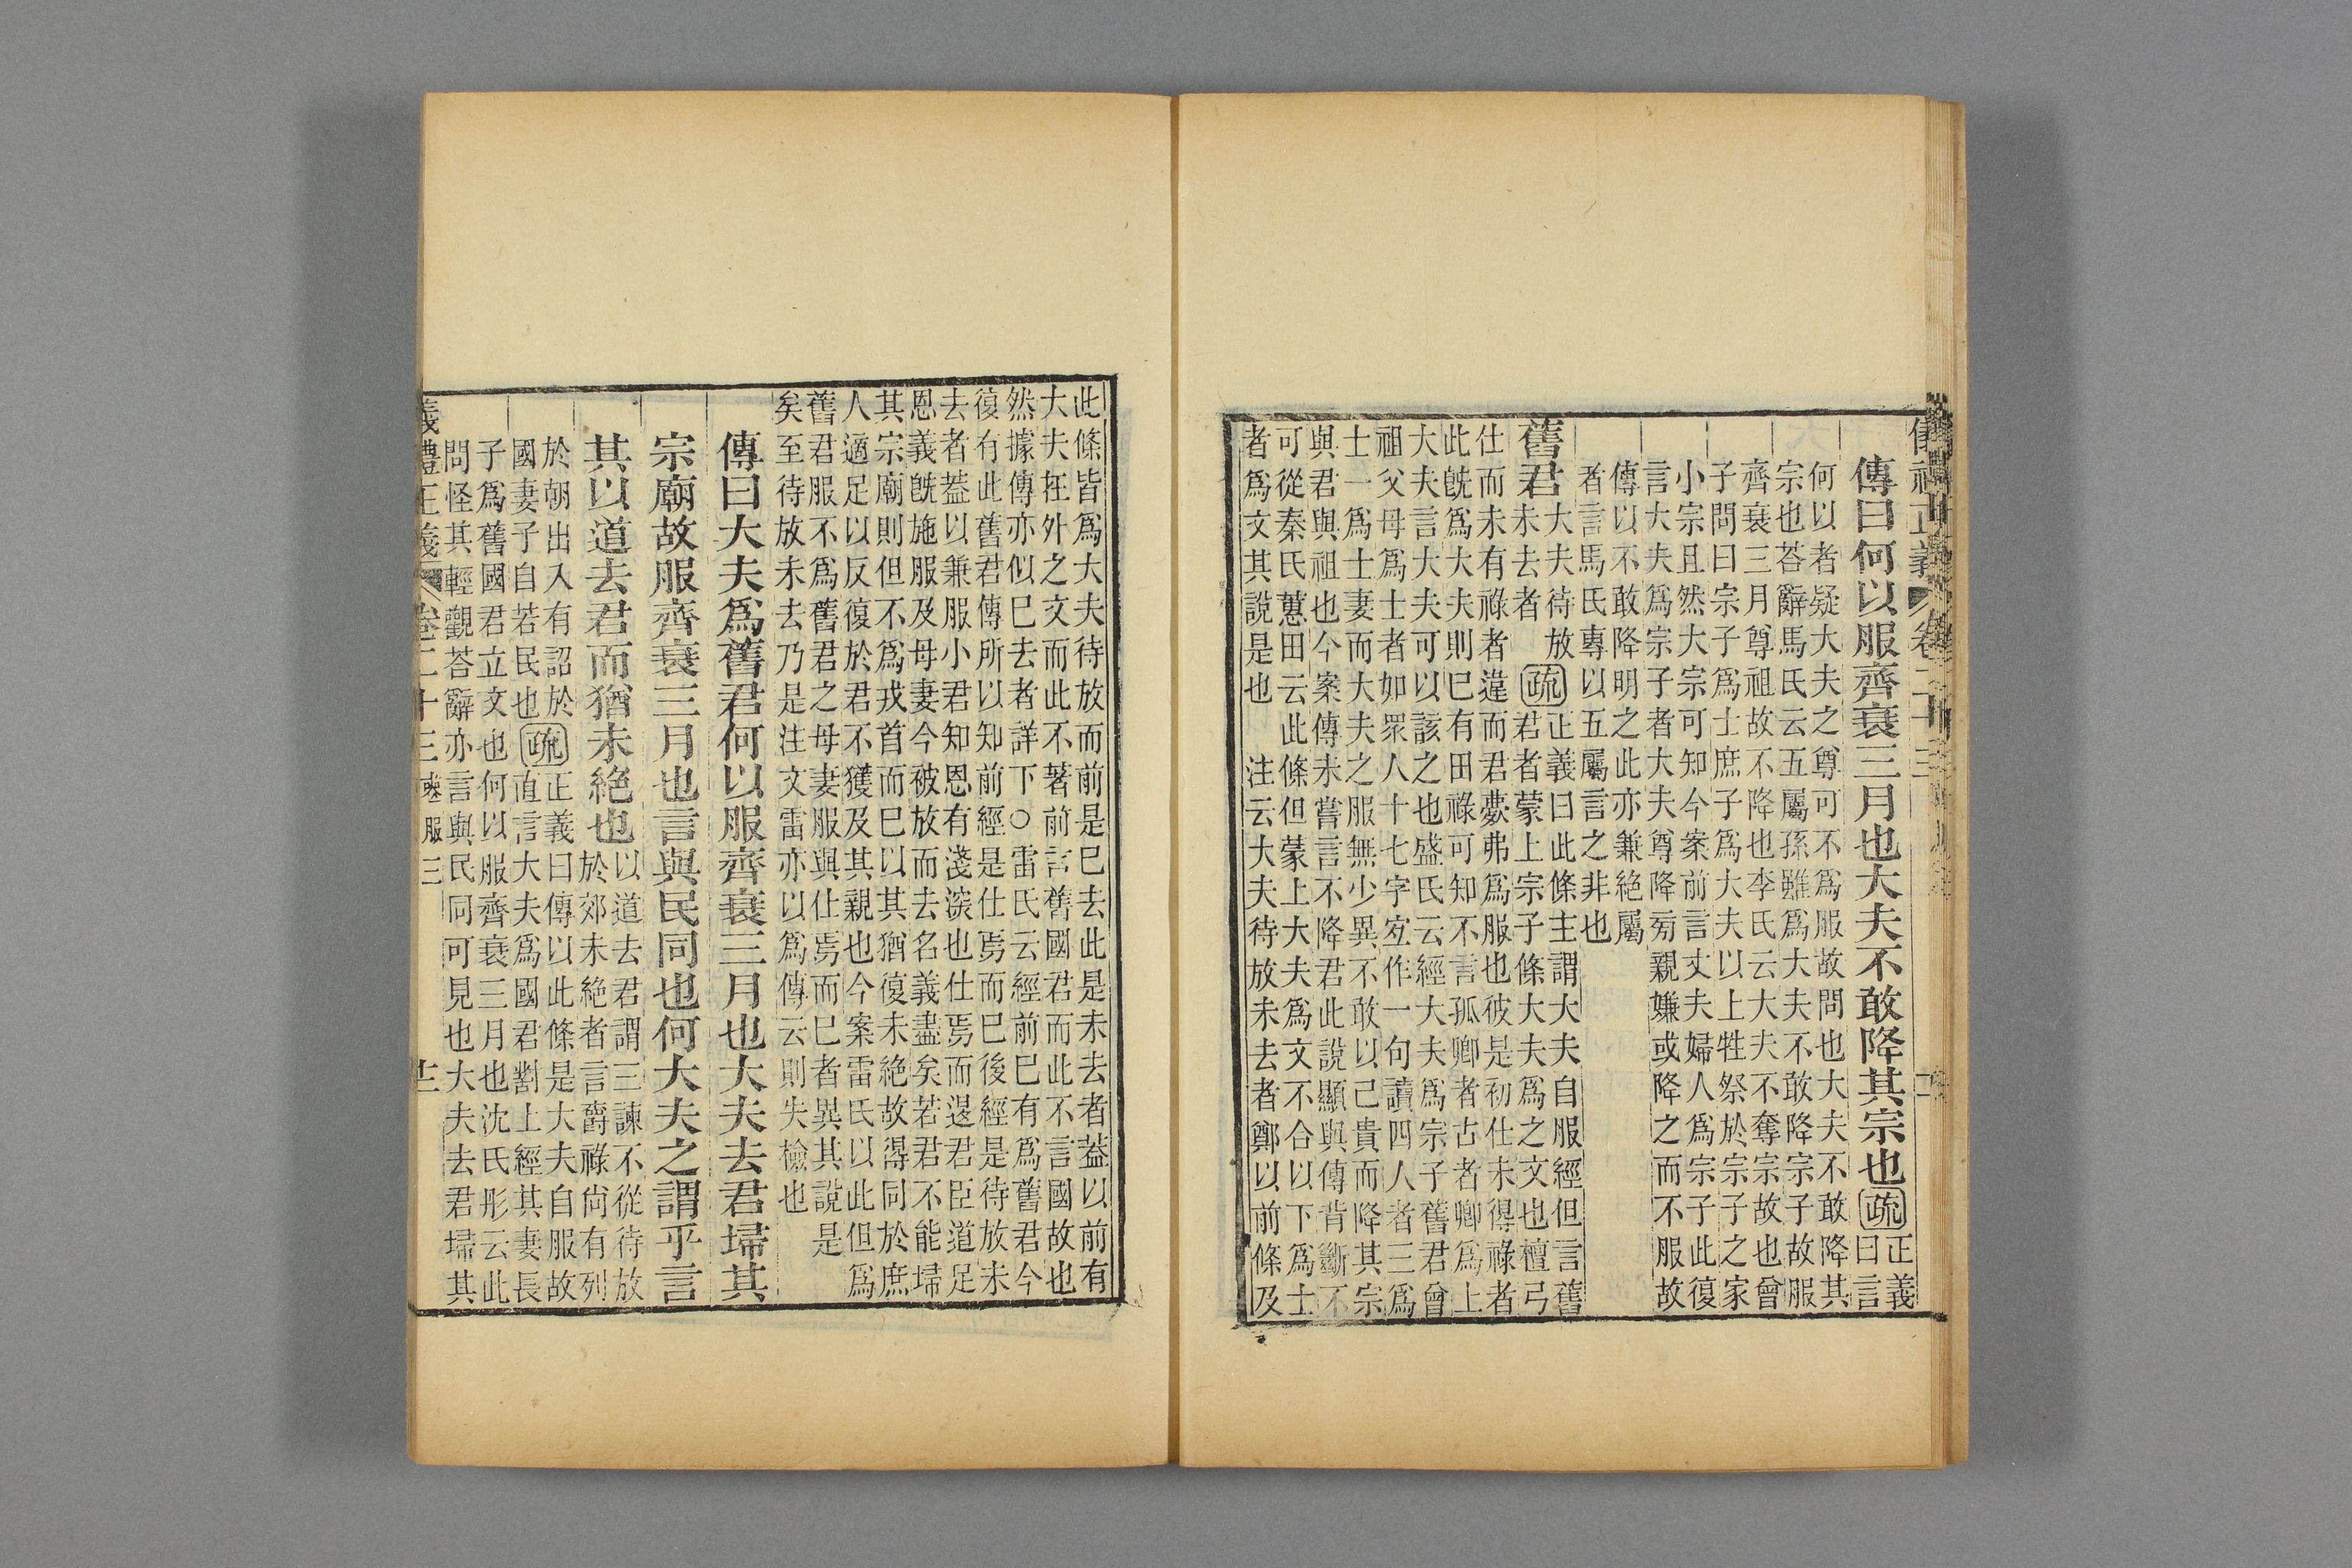 儀禮正義卷二十三
傳曰何以服齊衰三月也大夫不敢降其宗也疏正義
曰言
何以者疑大夫之尊可不爲服故問也大夫不敢降其
宗也荅辭馬氏云五屬孫雖爲大夫不敢降宗子故服
齊衰三月尊祖故不降也李氏云大夫不奪宗故也曾
子問曰宗子爲士庶子爲大夫以上牲祭於宗子之家
小宗且然大宗可知今案前言丈夫婦人爲宗子此復
言大夫爲宗子者大夫尊降旁親嫌或降之而不服故
傳以不敢降明之此亦兼絶屬
者言馬氏專以五屬言之非也
舊君
大夫待放
未去者
疏
正義曰此條主謂大夫自服經但言舊
君者蒙上宗子條大夫爲之文也檀弓
仕而未有祿者違而君薨弗爲服也彼是初仕未得祿者
此旣爲大夫則已有田祿可知不言孤卿者古者卿爲上
大夫言大夫可以該之也盛氏云經大夫爲宗子舊君曾
祖父母爲士者如眾人十七字宐作一句讀四人者三爲
士一爲士妻而大夫之服無少異不敢以己貴而降其宗
與君與祖也今案傳未嘗言不降君此說顯與傳背斷不
可從秦氏蕙田云此條但蒙上大夫爲文不合以下爲士
者爲文其說是也 注云大夫待放未去者鄭以前條及
此條皆爲大夫待放而前是已去此是未去者蓋以前有
大夫在外之文而此不著前言舊國君而此不言國故也
然據傳亦似已去者詳下○雷氏云經前已有爲舊君今
復有此舊君傳所以知前經是仕焉而已後經是待放未
去者蓋以兼服小君知恩有淺深也仕焉而退君臣道足
恩義旣施服及母妻今被放而去名義盡矣若君不能埽
其宗廟則但不爲戎首而已以其猶復未絶故得同於庶
人適足以反復於君不獲及其親也今案雷氏以此但爲
舊君服不爲舊君之母妻服與仕焉而已者異其說是
矣至待放未去乃是注文雷亦以爲傳云則失檢也
傳曰大夫爲舊君何以服齊衰三月也大夫去君埽其
宗廟故服齊衰三月也言與民同也何大夫之謂乎言
其以道去君而猶未絶也
以道去君謂三諫不從待放
於郊未絶者言爵祿尙有列
於朝出入有詔於
國妻子自若民也
疏
正義曰傳以此條是大夫自服故
直言大夫爲國君劉上經其妻長
子爲舊國君立文也何以服齊衰三月也沈氏彤云此
問怪其輕觀荅辭亦言與民同可見也大夫去君埽其
儀禮正義卷二十三 喪服三 十二